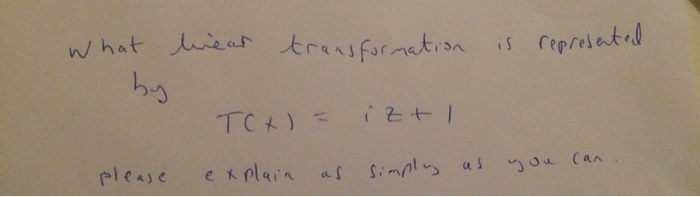 What linear transformation is represented
by
T(x) = iz+1
please explain as simply as you can.